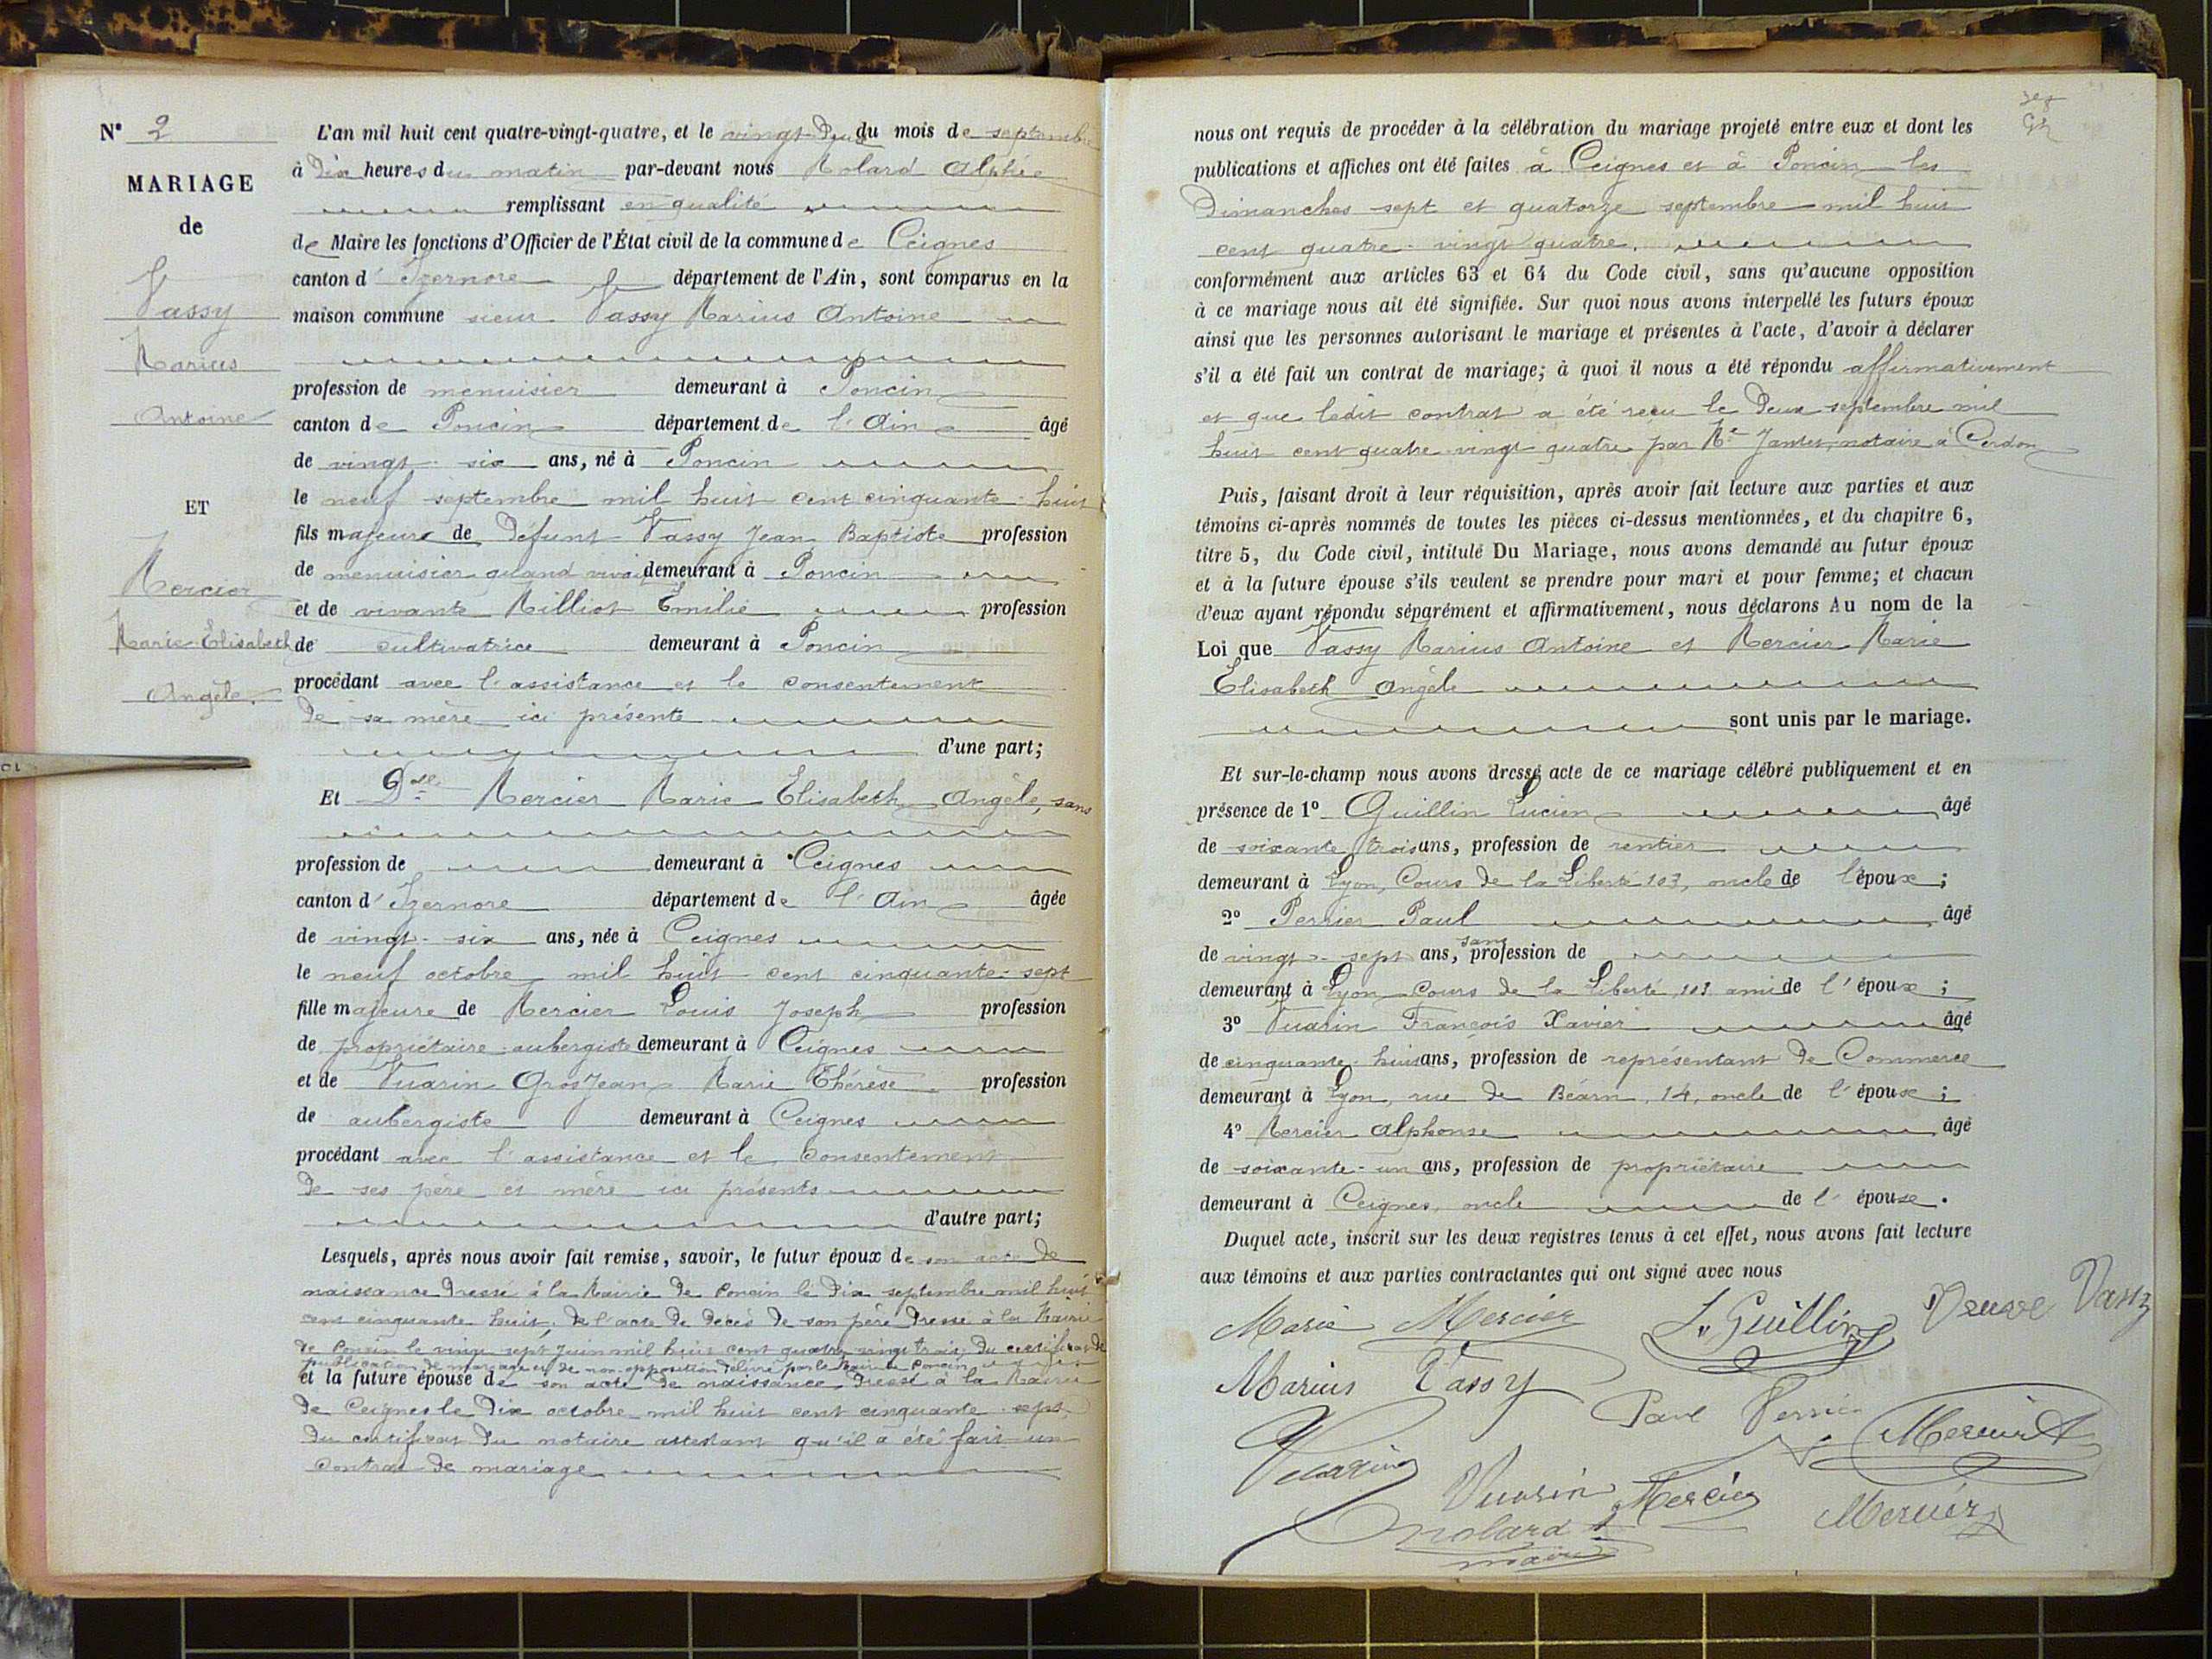 N° 2
MARIAGE
de
Vassy
Marius
Antoine
ET
Mercier
Marie Elisabeth
Angèle.
L'an mil huit cent quatre-vingt-quatre, et le vingt-deux du mois de septembre
à dix heures du matin par-devant nous Nolard Alphée
remplissant en qualité
de Maire les fonctions d'Officier de l'État civil de la commune de Ceignes
canton d'Izernore département de l'Ain, sont comparus en la
maison commune sieur Vassy Marius Antoine
profession de menuisier demeurant à Poncin
canton de Poncin département de l'Ain âgé
de vingt-six ans, né à Poncin
le neuf septembre mil huit cent cinquante-huit
fils majeur de défunt Vassy Jean Baptiste profession
de menuisier quand vivait demeurant à Poncin
et de vivante Milliot Emilie profession
de cultivatrice demeurant à Poncin
procédant avec l'assistance et le consentement
de sa mère ici présente
d'une part;
Et Dlle Mercier Marie Elisabeth Angèle, sans
profession de demeurant à Ceignes
canton d'Izernore département de l'Ain âgée
de vingt-six ans, née à Ceignes
le neuf octobre mil huit cent cinquante-sept
fille majeure de Mercier Louis Joseph profession
de propriétaire-aubergiste demeurant à Ceignes
et de Vuarin Grosjean Marie Thérèse profession
de aubergiste demeurant à Ceignes
procédant avec l'assistance et le consentement
de ses père et mère ici présents
d'autre part;
Lesquels, après nous avoir fait remise, savoir, le futur époux de son acte de
naissance dressé à la Mairie de Poncin le dix septembre mil huit
cent cinquante huit, de l'acte de décès de son père dressé à la Mairie
de Poncin le vingt sept juin mil huit cent quatre vingt trois, du certificat de
publication de mariage et de non-opposition délivré par le Maire de Poncin
et la future épouse de son acte de naissance dressé à la Mairie
de Ceignes le dix octobre mil huit cent cinquante sept,
du certificat du notaire attestant qu'il a été fait un
contrat de mariage
nous ont requis de procéder à la célébration du mariage projeté entre eux et dont les
publications et affiches ont été faites à Ceignes et à Poncin les
dimanches sept et quatorze septembre mil huit
cent quatre-vingt quatre.
conformément aux articles 63 et 64 du Code civil, sans qu'aucune opposition
à ce mariage nous ait été signifiée. Sur quoi nous avons interpellé les futurs époux
ainsi que les personnes autorisant le mariage et présentes à l'acte, d'avoir à déclarer
s'il a été fait un contrat de mariage; à quoi il nous a été répondu affirmativement
et que ledit contrat a été reçu le deux septembre mil
huit cent quatre-vingt quatre par Me Jantet, notaire à Cerdon
Puis, faisant droit à leur réquisition, après avoir fait lecture aux parties et aux
témoins ci-après nommés de toutes les pièces ci-dessus mentionnées, et du chapitre 6,
titre 5, du Code civil, intitulé Du Mariage, nous avons demandé au futur époux
et à la future épouse s'ils veulent se prendre pour mari et pour femme; et chacun
d'eux ayant répondu séparément et affirmativement, nous déclarons Au nom de la
Loi que Vassy Marius Antoine et Mercier Marie
Elisabeth Angèle
sont unis par le mariage.
Et sur-le-champ nous avons dressé acte de ce mariage célébré publiquement et en
présence de 1° Guillin Lucien âgé
de soixante trois ans, profession de rentier
demeurant à Lyon, Cours de la Liberté 103, oncle de l'époux;
2° Perrier Paul âgé
de vingt-sept ans, sans profession de
demeurant à Lyon Cours de la Liberté 103 ami de l'époux;
3° Vuarin François Xavier âgé
de cinquante-huit ans, profession de représentant de Commerce
demeurant à Lyon, rue de Béarn, 14, oncle de l'épouse;
4° Mercier Alphonse âgé
de soixante-un ans, profession de propriétaire
demeurant à Ceignes, oncle de l'épouse.
Duquel acte, inscrit sur les deux registres tenus à cet effet, nous avons fait lecture
aux témoins et aux parties contractantes qui ont signé avec nous
Marie Mercier L. Guillin Veuve Vassy
Marius Vassy
Paul Perrier
Mercier A
Vuarin
Vuarin Mercier Mercier
Nolard A
maire